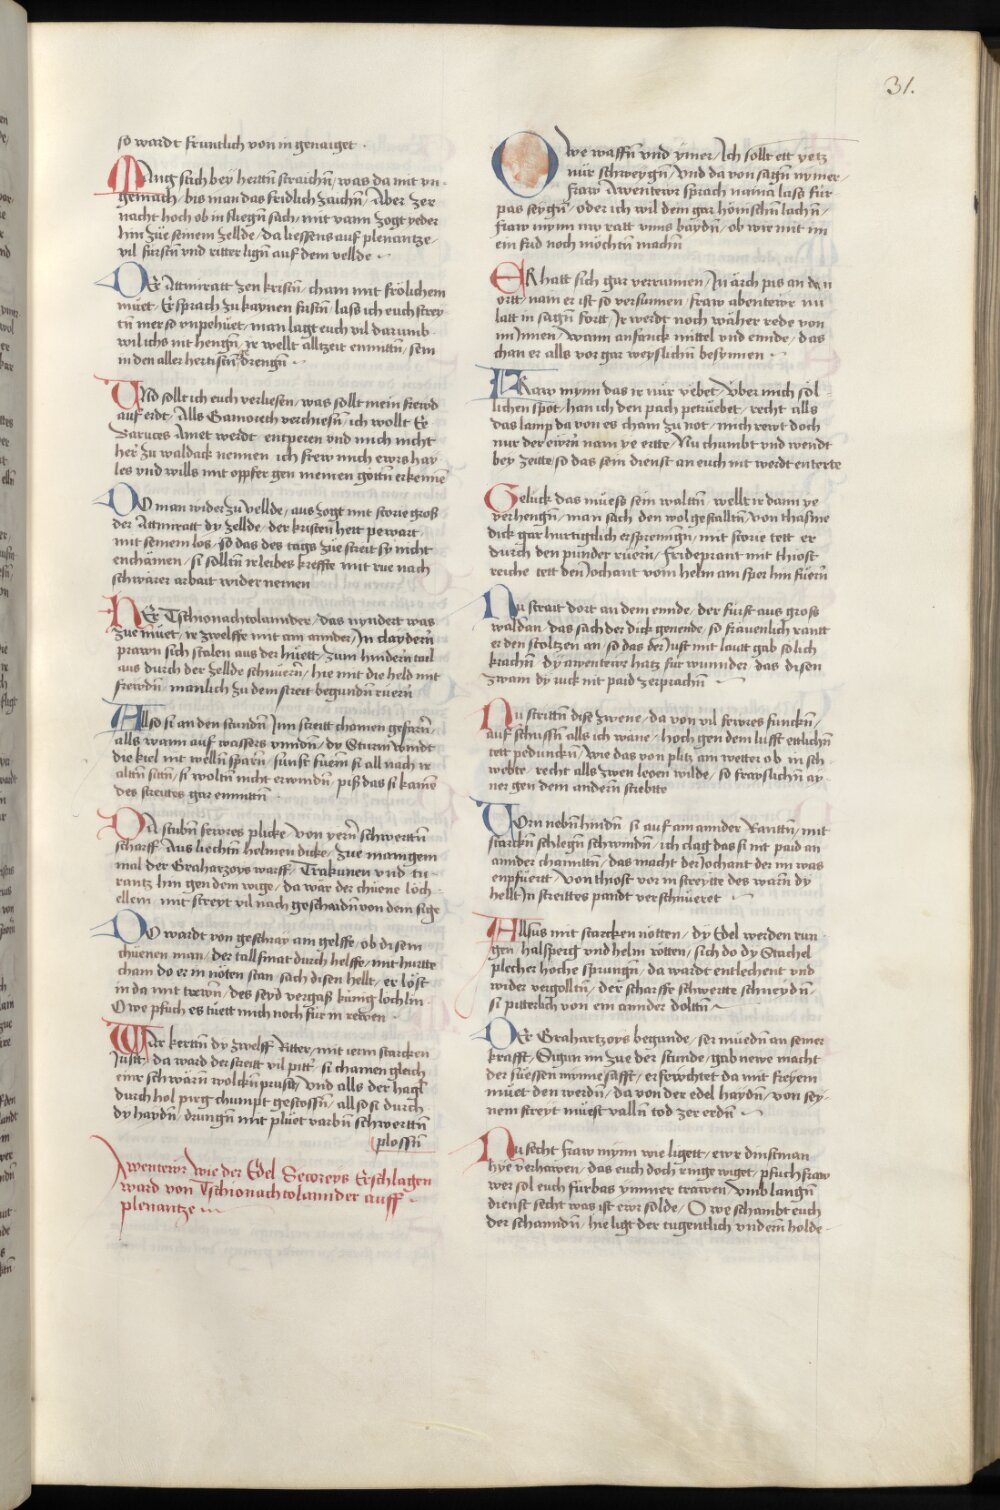 31.
so wardt fruntlich von in genaiget ·
Mang sich bey hertn̄ straichn̄ / was da mit vn
gemach / bis man das fridlich zaichn̄ / Aber zer
nacht hoch ob in fliegn̄ sach / mit vann zogt yeder
hin zue seinem zellde / da liessens auf plenantze /
vil fursten vnd ritter lign̄ auf dem vellde ·
Der Attmiratt zen kristn̄ / cham mit frölichem
müet / Er sprach zu kaynen fristn̄ / lass ich euch strey
tn̄ mer so vnpehüet / man lagt euch vil darumb
wil ichs nit hengn̄ / Je wellt alltzeit enmittn̄ / sein
in den aller hertistn̄ drengn̄ ·
Und sollt ich euch verliesen / was sollt mein frewd
auf erdt / Alls Gamorett verchiesn̄ / ich wollt Er
Baruces Amet werdt / enpeten vnd mich nicht
her zu waldack nennen ich frew mich ewrs hay
les vnd wills mit oppfer gen meinen gottn̄ erkenne
Do man wider zu vellde / aus zogt mit storie groß
der Attmiratt dy zellde / der kristen hert pewart
mit seinem los / so das des tags zue streit sy nicht
enchämen / si solltn̄ ir leibes kreffte mit rue nach
schwärer arbait wider nemen
Her Tschionachtolannder / das nyndert was
zue müet / ir zwelffe mit am annder / In claydern̄
prawn sich stalen aus der hüett / zum hindern tail
aus durch der zellde schnüern̄ / hie mit die held mit
frewdn̄ / manlich zu dem streit begundn̄ ruern̄
Allso si an den stundn̄ / Inn streitt chamen gefarn̄ /
alls wann auf wassers vnndn̄ / dy Sturm windt
die kiel nit welln̄ sparn̄ / sunst fuern̄ si all nach ir
alltn̄ sittn̄ / si woltn̄ nicht erwindn̄ / piß das si kamē
des streittes gar enmittn̄
Da stubn̄ fewres plicke / von yern̄ schwerttn̄
scharff / Aus liechtn̄ helmen dicke / zue manigem
mal der Graharzoys warff / Trakunen vnd tu
rantz hin gen dem wige / da war der chüene löch
ellein mit streyt vil nach geschaidn̄ von dem sige
Do wardt von geschray am gelffe / ob disem
chüenen man / der tallfinat durch helffe / mit hurtte
cham do er in nöten stan / sach disen hellt / er löst
in da mit trewn̄ / des seyd vergaß künig löchlin
O we pfuch es tüett mich noch für in rewen ·
War kertn̄ dy zwelff Ritter / mit iern starcken
Justt / da ward der streitt vil pitt̄ / si chamen gleich
einr schwärn̄ wolckn̄ prustt / Vnd alls der hagl
durch hol pirg chumpt gestossn̄ / allso si durch
dy haydn̄ / drungn̄ mit plüet varbn̄ schwerttn̄
plossn̄
Awentewr wie der Edel Secureys Erschlagen
ward von Tschionachtolannder auff
plenantze
Owe waffn̄ vnd ymer / Ich sollt ett yetz
nür schweygn̄ / Vnd da von sagn̄ nymer /
fraw Awentewr sprach naina lass für
pas seygn̄ / oder ich wil dem gar hönischn̄ lachn̄ /
fraw mynn nw ratt vnns baydn̄ / ob wir mit im
ein frid noch möchtn̄ machn̄
ER hatt sich gar verrunnen / In ärch pis an den
ortt / nain er ist so versunnen / fraw abentewr nu
latt in sagn̄ fortt / Ir werdt noch wäher rede von
im Innen / Wann anfanck mittel vnd ennde / das
chan er alls vor gar weyslichn̄ besynnen ·
FRaw mynn das ir nür vebet / Vber mich söl
lichen spot / han ich den pach petrüebet / recht alls
das lamp da von es cham zu not / mich rewt doch
nur der eren nam ye ertte / Nu chumbt vnd wendt
bey zeitte / so das sein dienst an euch nit werdt enterte
Gelück das müess sein walttn̄ / wellt ir dann ye
verhengn̄ / man sach den wol gestalltn̄ / von thasme
dick gar hurtigtlich ersprenngn̄ / mit storie tett er
durch den pünder rüern̄ / frideprant mit thiost
reiche tett den Jochant vom helm am sper hin füern̄
Nu strait dort an dem ennde / der fürst aus gross
waldan / das sach der dick genende / so frauenlich rantt
er den stoltzen an / so das der Just mit lautt gab solich
krachn̄ / dy awentewr hatz für wunnder / das disen
zwain dy ruck nit paid zerprachn̄ ·
Nu strittn̄ dise zwene / da von vil fewres funckn̄ /
auf schussn̄ alls ich wäne / hoch gen dem lufft ettlichn̄
tett pedunckn̄ / wie das von plitz am wetter ob in sch
webte / recht alls zwen leoen wilde / so frayslichn̄ ay
ner gen dem andern strebtte
Vorn nebn̄ hindn̄ si auf am annder Ranttn̄ / mit
starckn̄ schlegn̄ schwindn̄ / ich clag das si nit paid an
annder channttn̄ / das macht der Jochant der im was
enpfüertt / Von thiost vor in streytte des warn̄ dy
hellt In streittes pandt verschnüeret
Allsus mit starcken nötten / dy Edel werden run
gen / halsperg vnd helm rötten / sich do dy Stachel
plecher hoche sprungn̄ / da wardt entlechent vnd
wider vergolltn̄ / der scharffe schwertte schneydn̄ /
si pitterlich von ein annder doltn̄
Der Grahartzoys begunde / ser müedn̄ an seiner
krafft / Sigun im zue der stunde / gab newe macht
der süessen mynne safft / er fewchtet da mit freyem
müet den werdn̄ / da von der edel haydn̄ / von sey
nem streyt müest valln̄ tod zer erdn̄
Nu secht fraw mynn wie ligett / ewr dinstman
hye verhawen / das euch doch ringe wiget / pfuch fraw
wer sol euch fürbas ymmer trawen / Vmb langn̄
dienst secht was ist ewr solde / O we schambt euch
der schanndn̄ / hie ligt der tugentlich vnd eren̄ holde ·